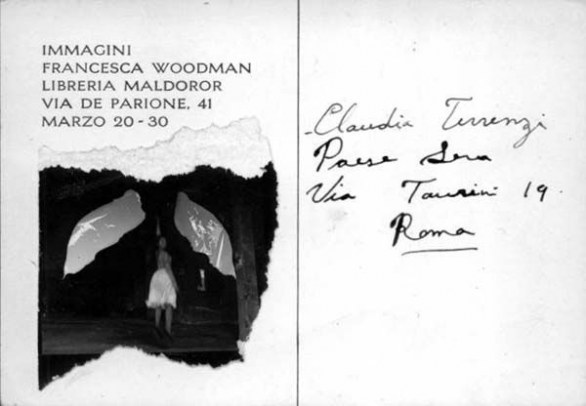 IMMAGINI
FRANCESCA WOODMAN
LIBRERIA MALDOROR
VIA DE PARIONE, 41
MARZO 20-30
Claudia Terrenzi
Paese Sera
Via Taurini 19
Roma